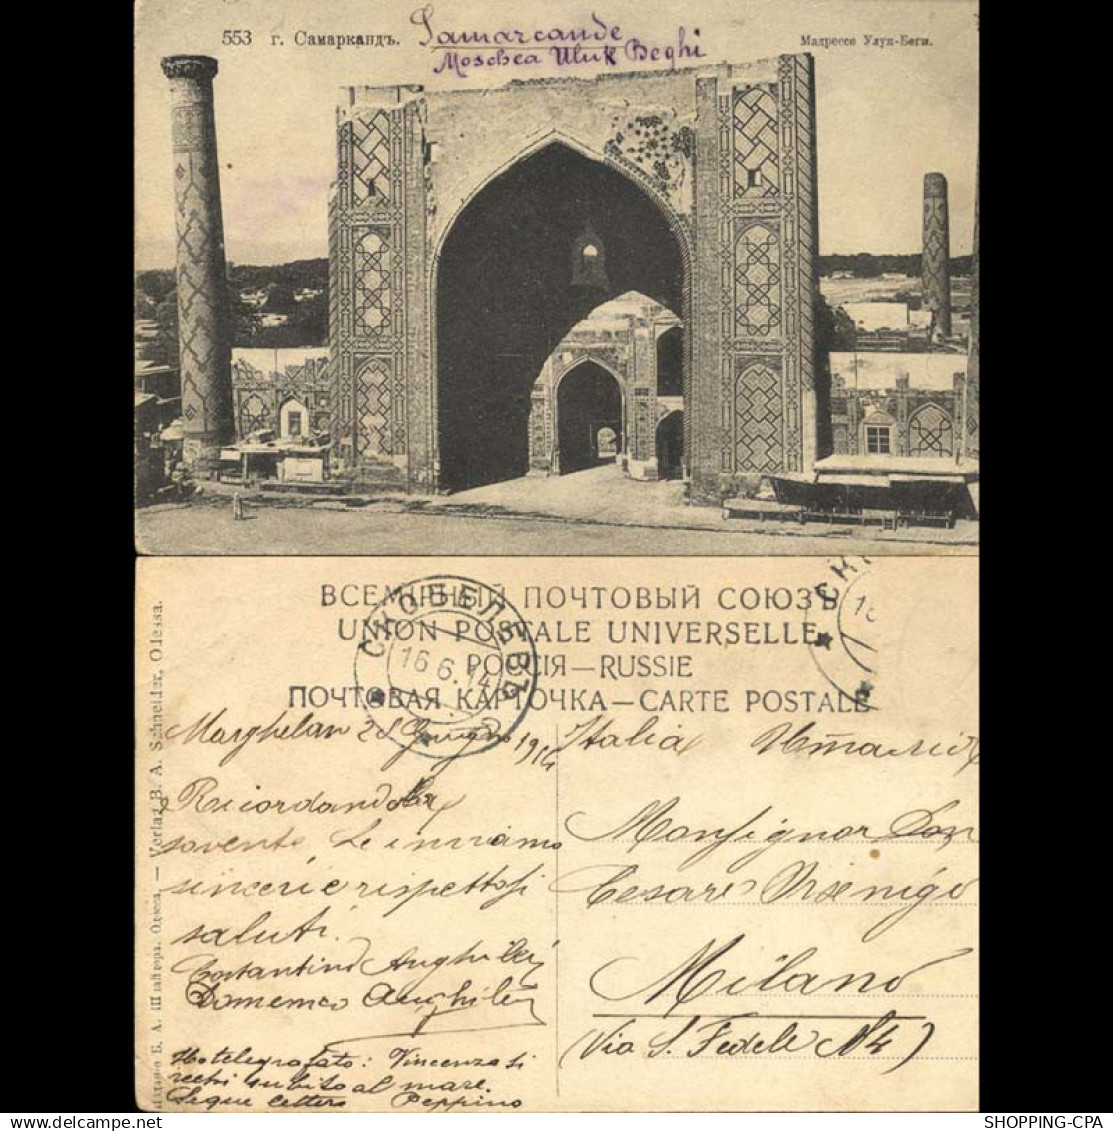 553 г. Самаркандъ.
Samarcande
Moschea Uluk Beghi
Мадрессе Улук-Беги.
ВСЕМІРНЫЙ ПОЧТОВЫЙ СОЮЗЪ
UNION POSTALE UNIVERSELLE
РОССІЯ—RUSSIE
ПОЧТОВАЯ КАРТОЧКА—CARTE POSTALE
СКОБЕЛЕВЪ
16 6.14
Verlag B. A. Schneider, Odessa.
Marghelan 28 Giugno 1914
Ricordandola
sovente Le inviamo
sinceri e rispettosi
saluti.
Costantino Anghileri
Domenico Anghileri
Ho telegrafato: Vincenza si
rechi subito al mare.
Segue lettera Peppino
Italia Италія
Monsignor Don
Cesare
Milano
(Via S. Fedele N 4)
SHOPPING-CPA